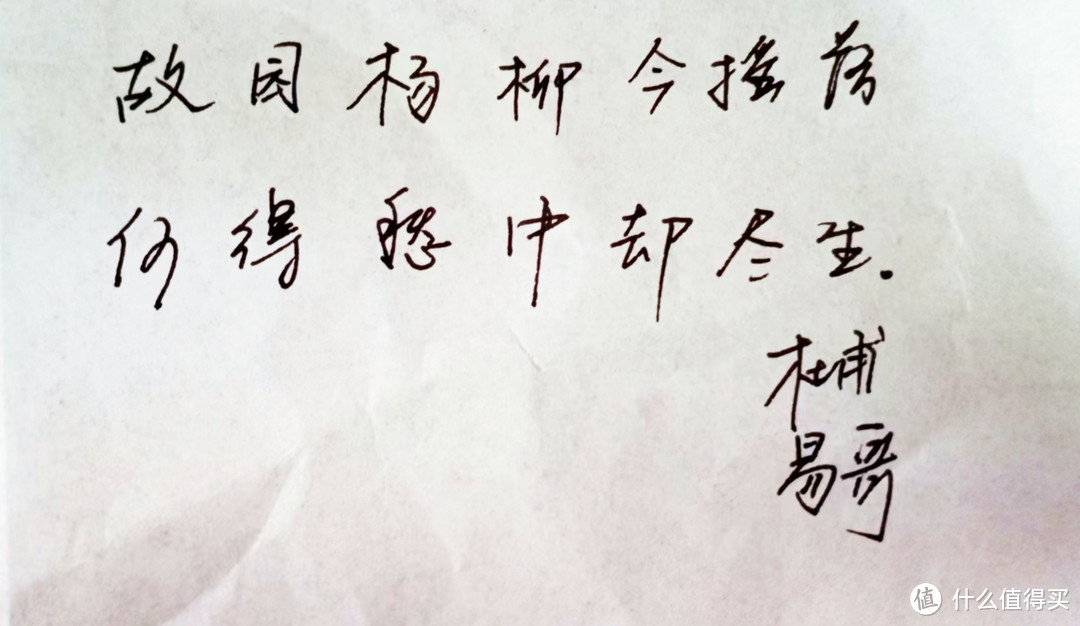 故园杨柳今摇落
何得愁中却尽生.
杜甫
易哥
值 什么值得买